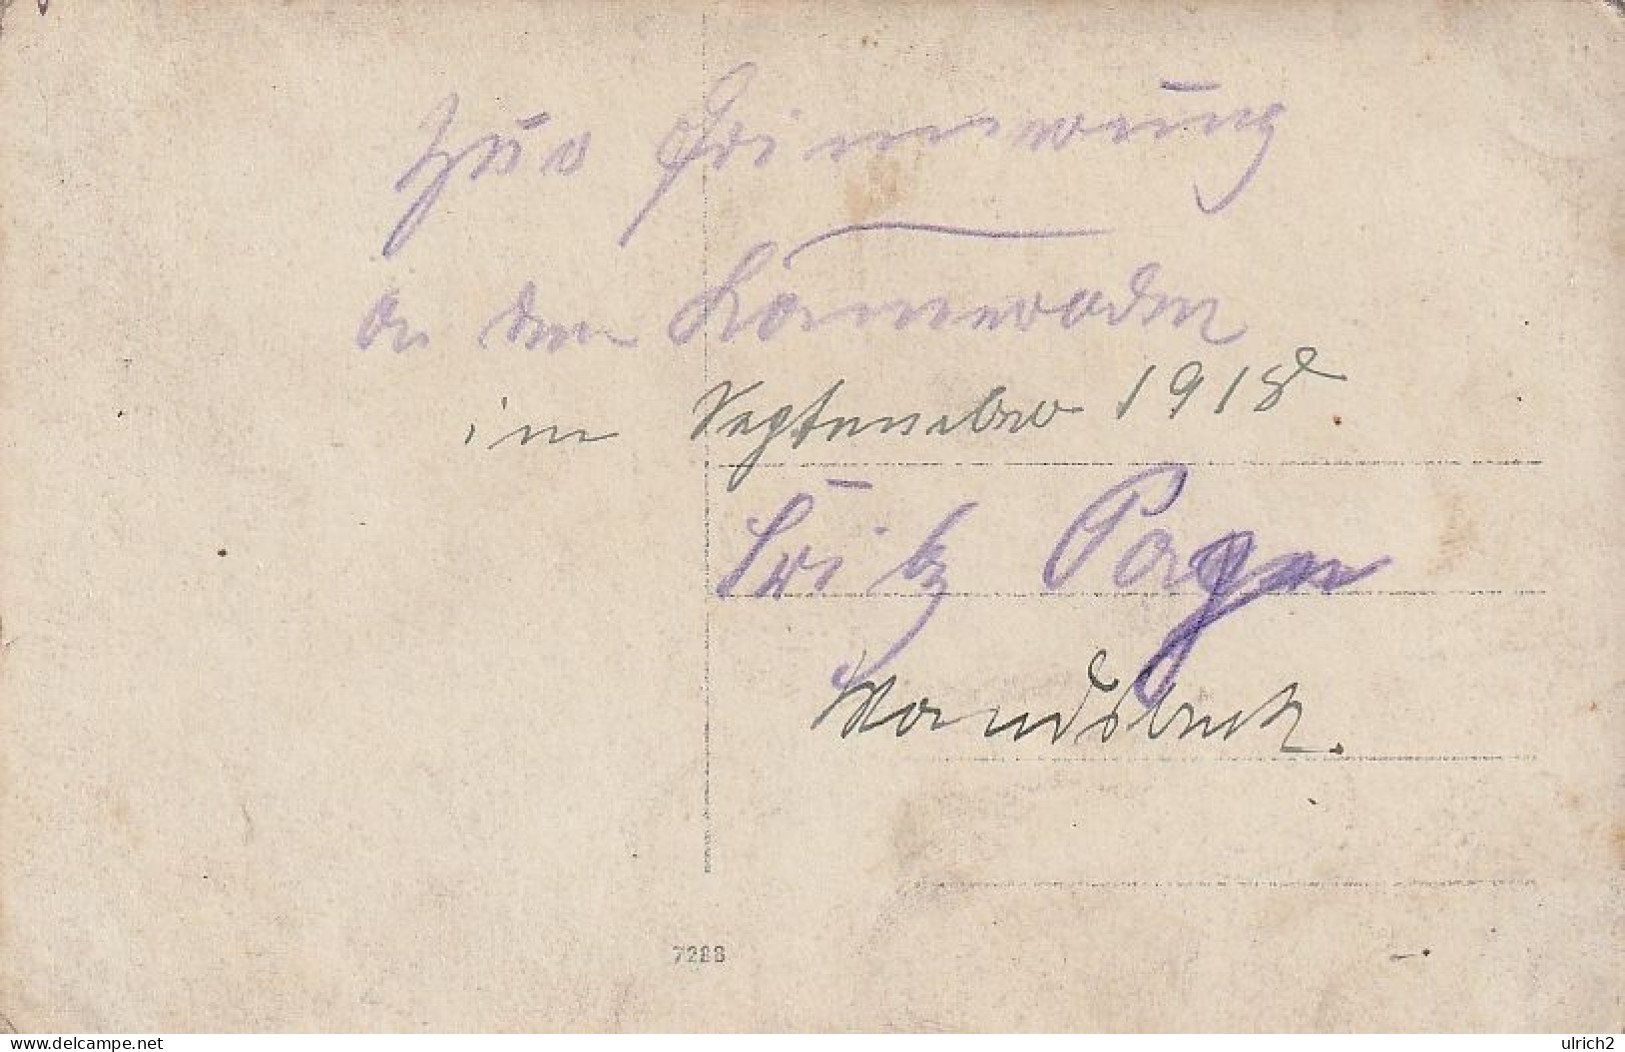 Zur Erinnerung
an den Kameraden
im September 1918
Fritz
Wandsbeck.
7288
www.delcampe.net
ulrich2